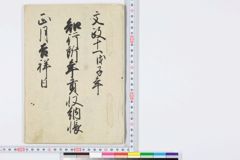 文政十一戊子年
知行所年貢収納帳
正月吉祥日